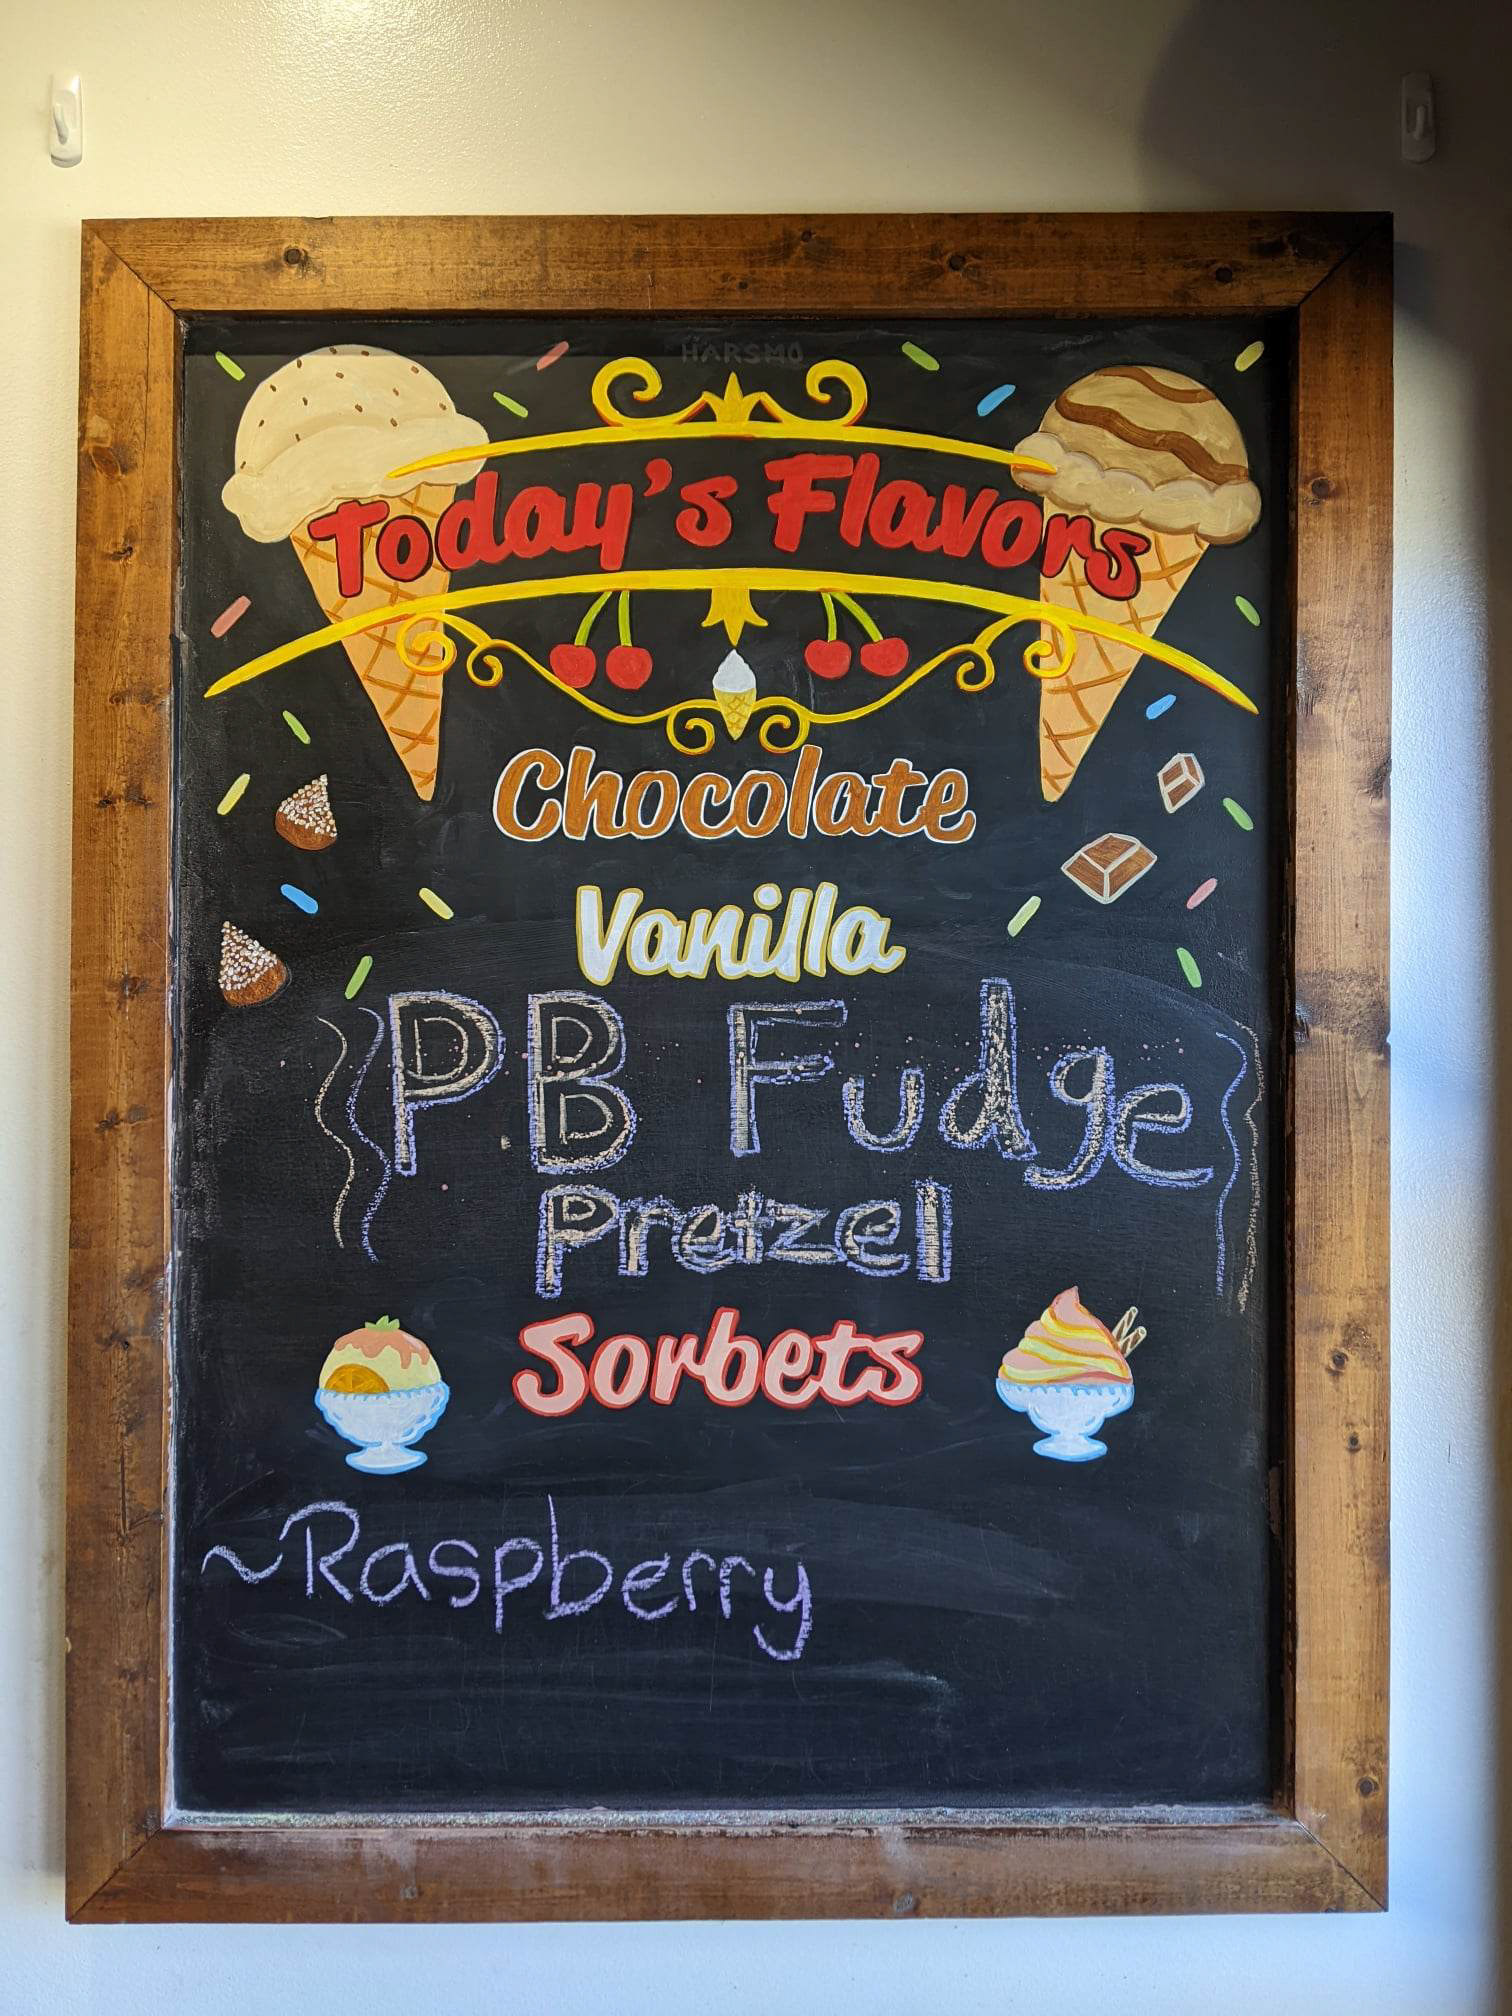 HARSMO
Today's Flavors
Chocolate
Vanilla
PB Fudge
Pretzel
Sorbets
~Raspberry